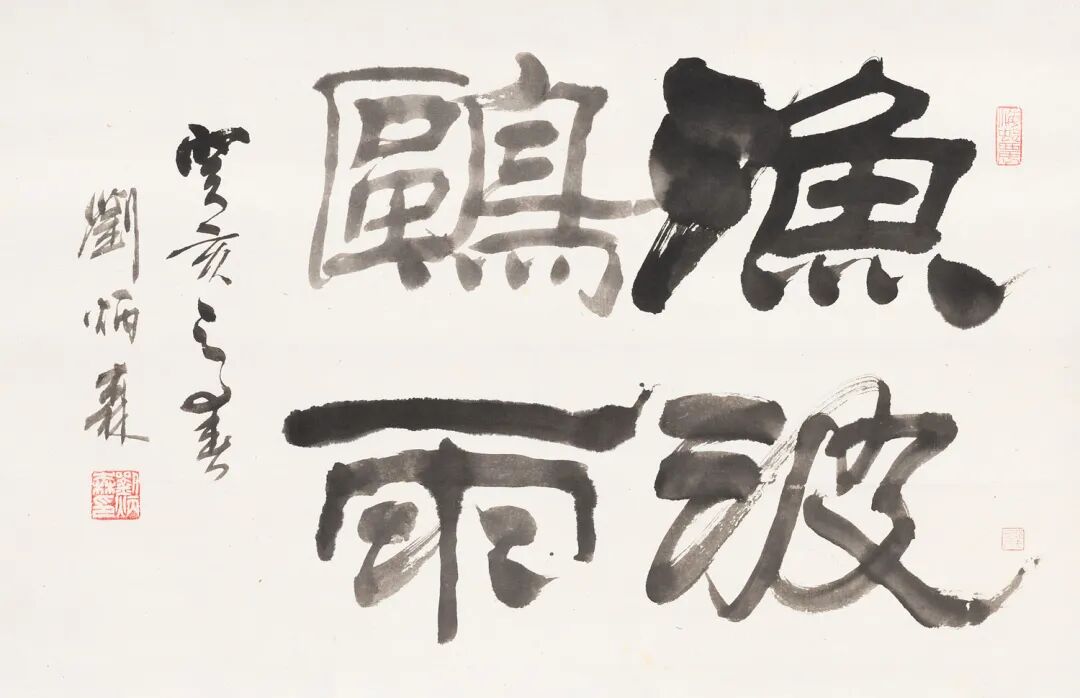 漁波
鷗雨
癸亥之春
劉炳森
劉炳森印